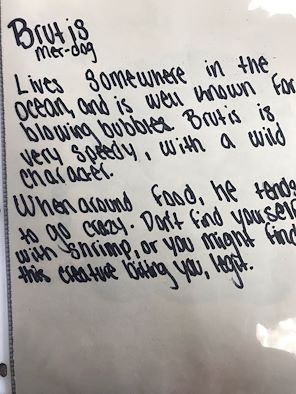 Brutis
mer-dog
Lives Somewhere in the
ocean, and is well known for
blowing bubbles. Brutis is
very speedy, with a wild
character.
When around food, he tends
to go crazy. Don't find yourself
with shrimp, or you might find
this creature biting you, legit.